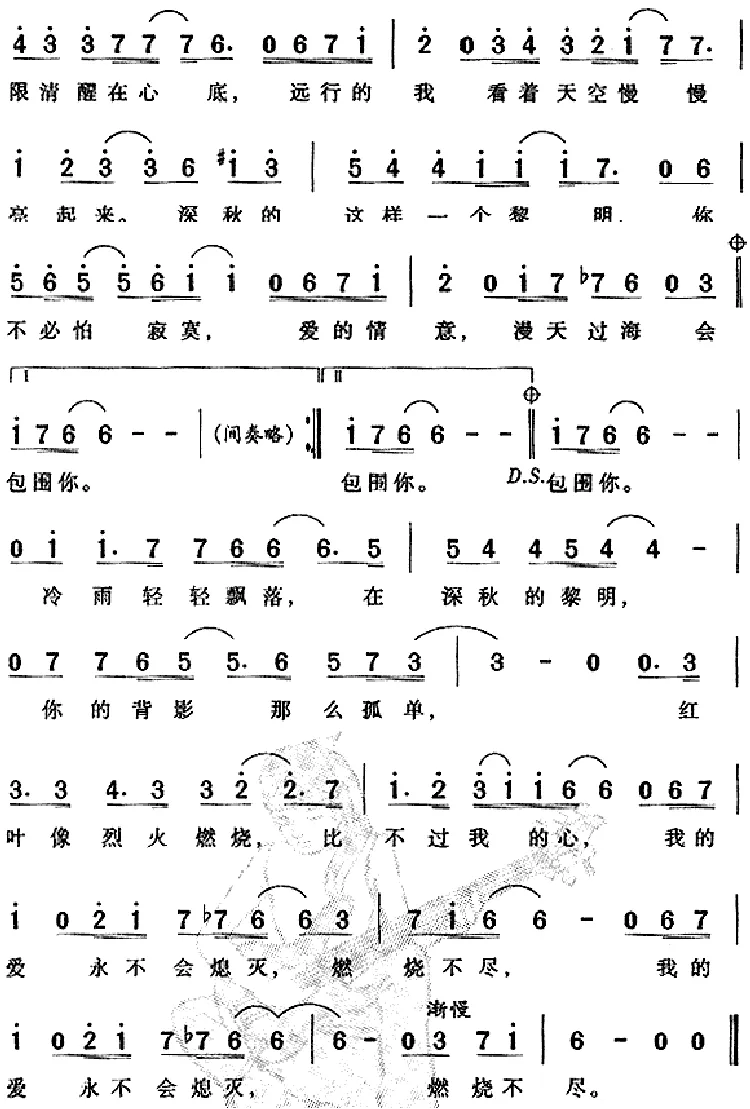 4 3 3 7 7 7 6. 0 6 7 1 | 2 0 3 4 3 2 1 7 7.
限清醒在心 底, 远行的 我 看着天空慢 慢
1 2 3 3 6 #1 3 | 5 4 4 1 1 1 7. 0 6 |
亮起来。 深秋的 这样一个黎 明, 你
5 6 5 5 6 1 1 0 6 7 1 | 2 0 1 7 b7 6 0 3
不必怕 寂寞, 爱的情 意, 漫天过海 会
I II
1 7 6 6 - - | (间奏略) :|| 1 7 6 6 - - || 1 7 6 6 - - |
包围你。 包围你。 D.S. 包围你。
0 1 1. 7 7 6 6 6. 5 | 5 4 4 5 4 4 - |
冷雨轻轻飘落, 在 深秋的黎明,
0 7 7 6 5 5. 6 5 7 3 | 3 - 0 0. 3
你的背影 那么孤单, 红
3. 3 4. 3 3 2 2. 7 | 1. 2 3 1 1 6 6 0 6 7 |
叶像烈火燃烧, 比 不过我 的心, 我的
1 0 2 1 7 b7 6 6 3 | 7 1 6 6 - 0 6 7 |
爱 永不会熄灭, 燃 烧不尽, 我的
渐慢
1 0 2 1 7 b7 6 6 | 6 - 0 3 7 1 | 6 - 0 0 ||
爱 永不会熄灭, 燃烧不 尽。